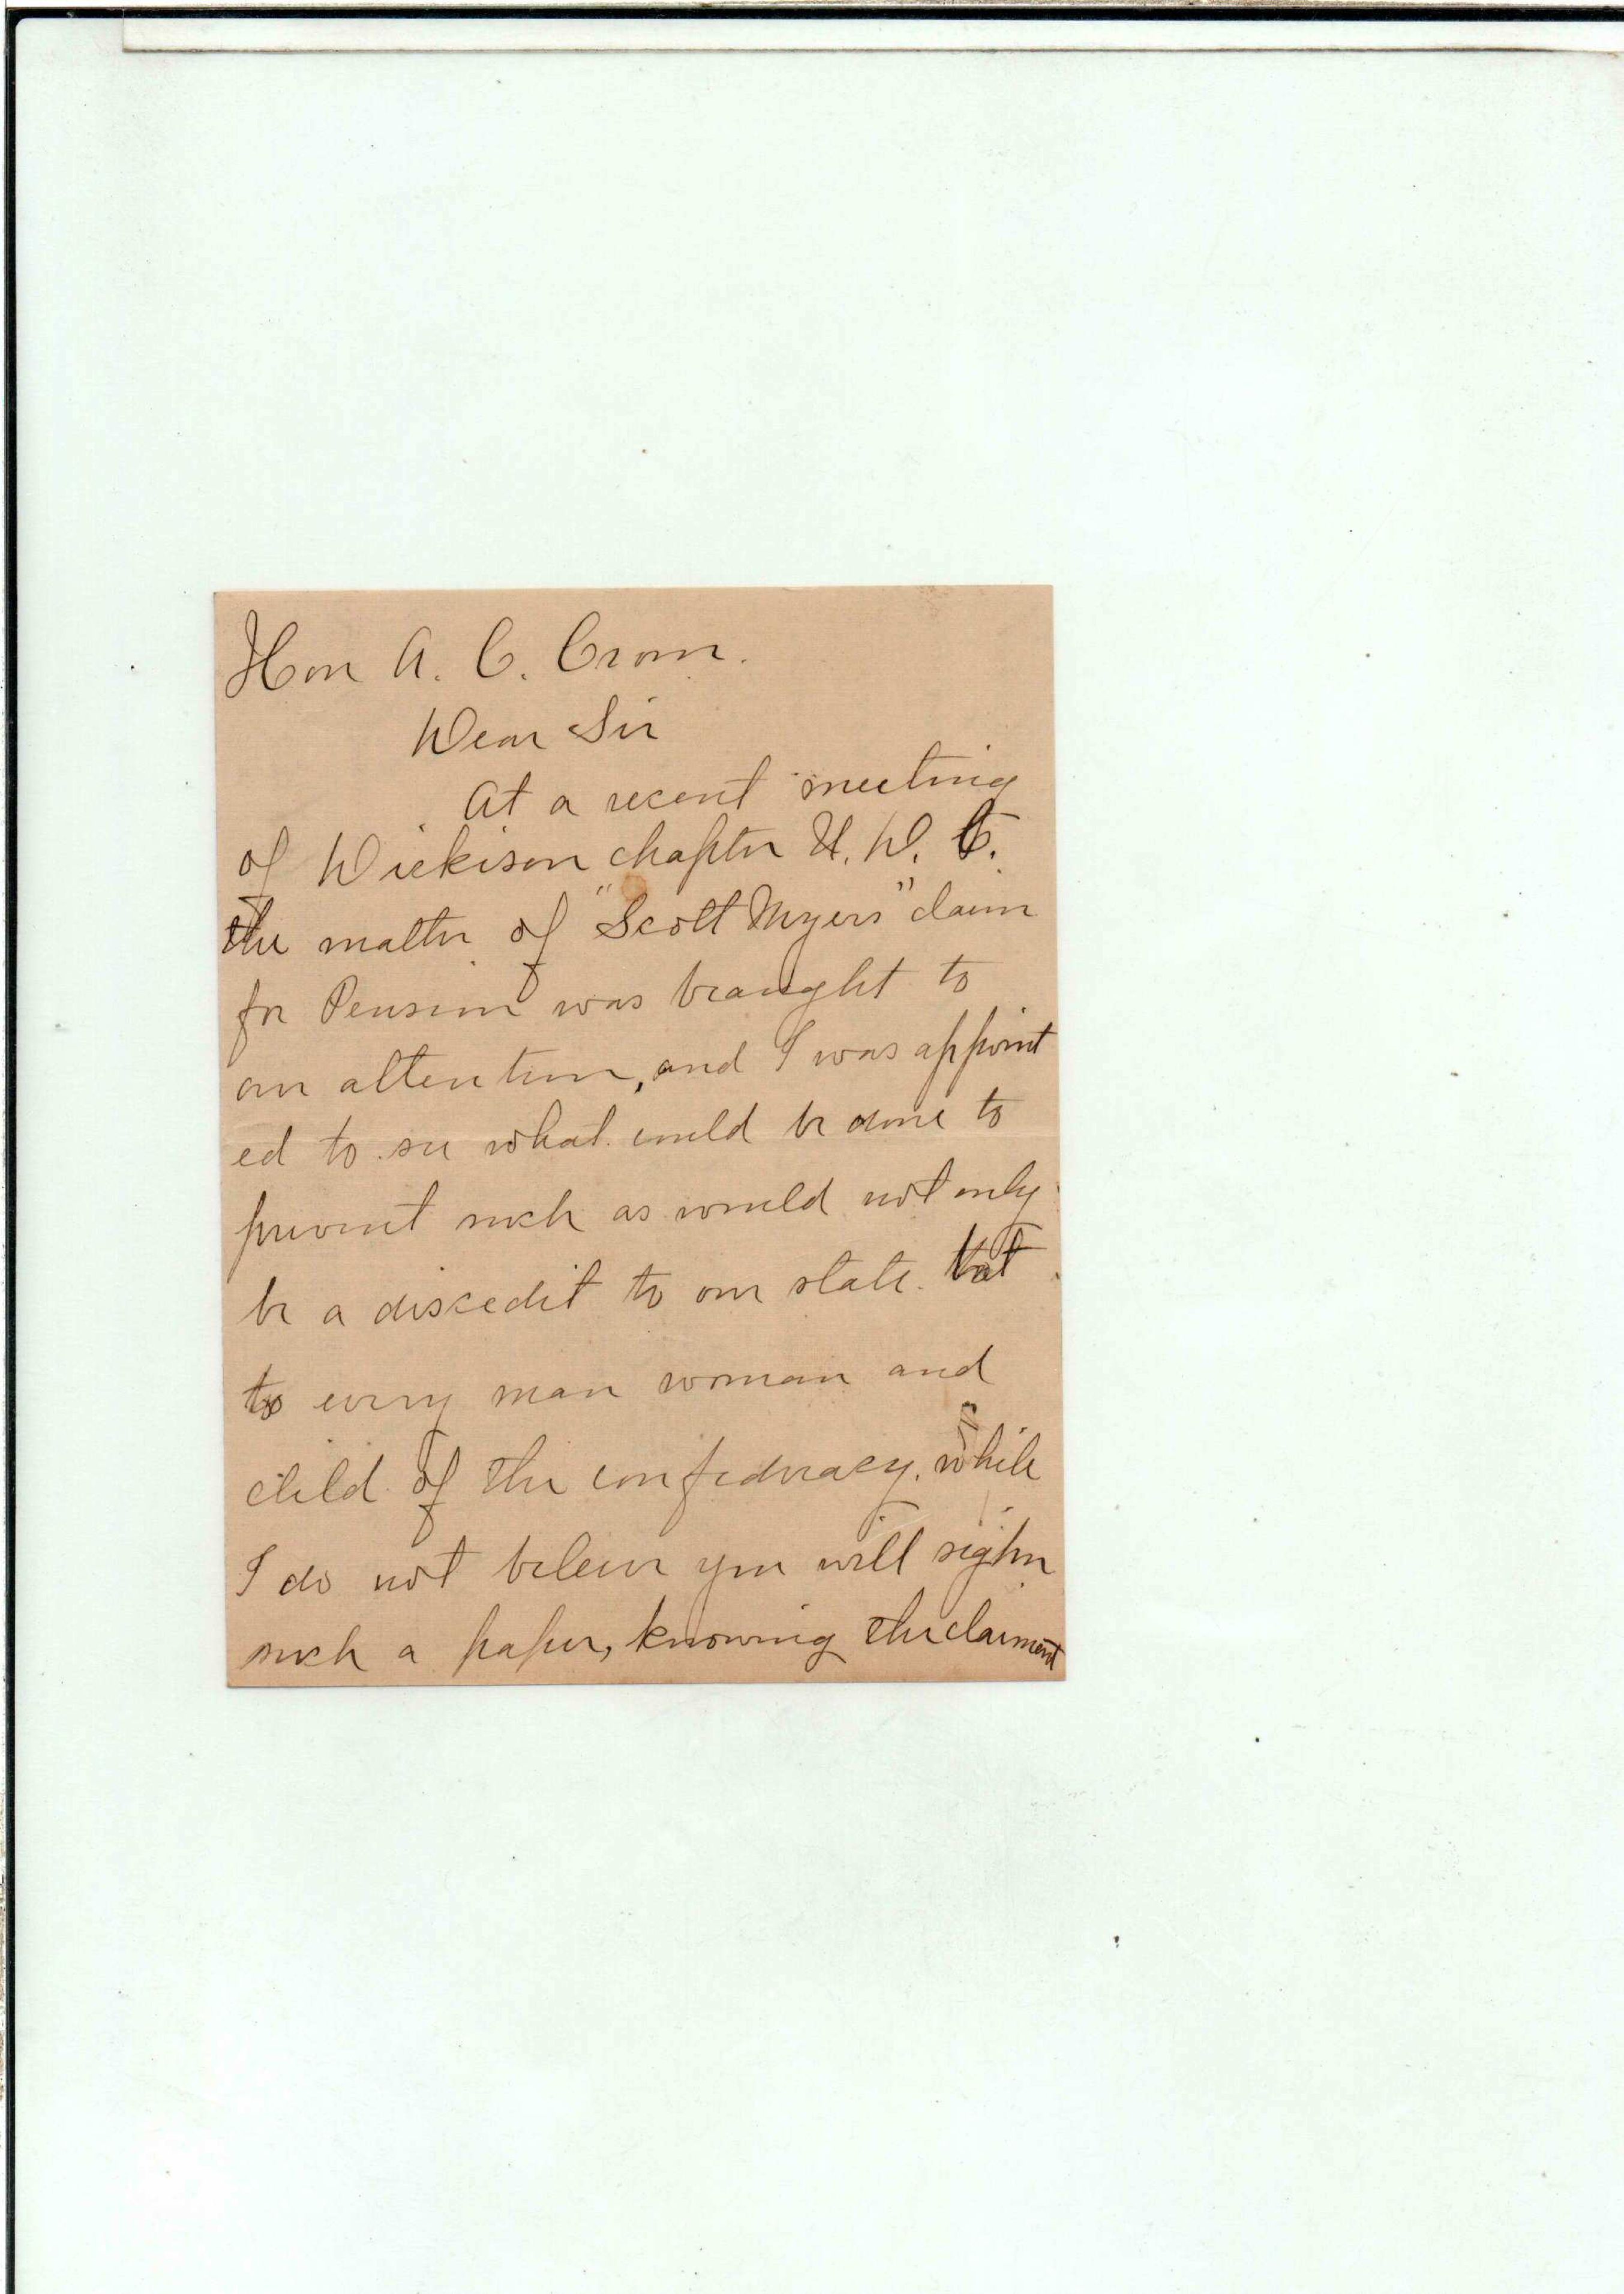 Hon A. C. Crom.
Dear Sir
At a recent meeting
of Dickison chapter U. D. C.
the matter of "Scott Myers" claim
for Pension was braught to
our attention, and I was appoint
ed to see what could be done to
prevent such as would not only
be a discedit to our state. but
to every man woman and
child of the confederacy. while
I do not beleive you will sighn
such a paper, knowing the claiment